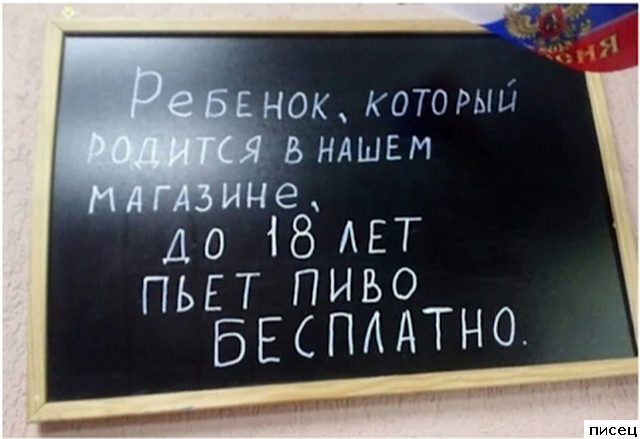 РЕБЕНОК, КОТОРЫЙ
РОДИТСЯ В НАШЕМ
МАГАЗИНЕ,
ДО 18 ЛЕТ
ПЬЕТ ПИВО
БЕСПЛАТНО.
писец